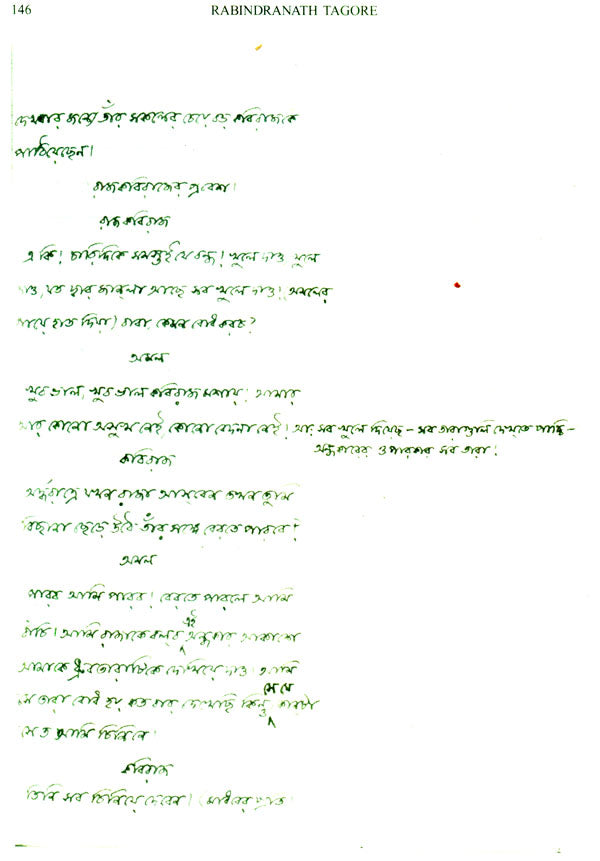 146
RABINDRANATH TAGORE
দেখবার জন্যে তাঁর সকলের চেয়ে বড় কবিরাজকে
পাঠিয়েছেন।
রাজকবিরাজের প্রবেশ।
রাজকবিরাজ
এ কি! চারিদিকে সমস্তই যে বন্ধ! খুলে দাও খুলে
দাও, যত দ্বার জান্‌লা আছে সব খুলে দাও! অমলের
গায়ে হাত দিয়া) বাবা, কেমন বোধ করচ?
অমল
খুব ভাল, খুব ভাল কবিরাজ মশায়! আমার
আর কোনো অসুখ নেই, কোনো বেদনা নেই! আঃ সব খুলে দিয়েছ – সব তারাগুলি দেখতে পাচ্চি –
অন্ধকারের ওপারকার সব তারা!
কবিরাজ
অর্দ্ধরাত্রে যখন রাজা আস্‌বেন তখন তুমি
বিছানা ছেড়ে উঠে তাঁর সঙ্গে বেরতে পারবে?
অমল
পারব আমি পারব! বেরতে পারলে আমি
বাঁচি! আমি রাজাকে বল্‌ব এই অন্ধকার আকাশে
আমাকে ধ্রুবতারাটিকে দেখিয়ে দাও! আমি
সে তারা বোধ হয় কতবার দেখেছি কিন্তু সে যে কোনটা
সে ত আমি চিনিনে!
কবিরাজ
তিনি সব চিনিয়ে দেবেন। (মাধবের প্রতি)